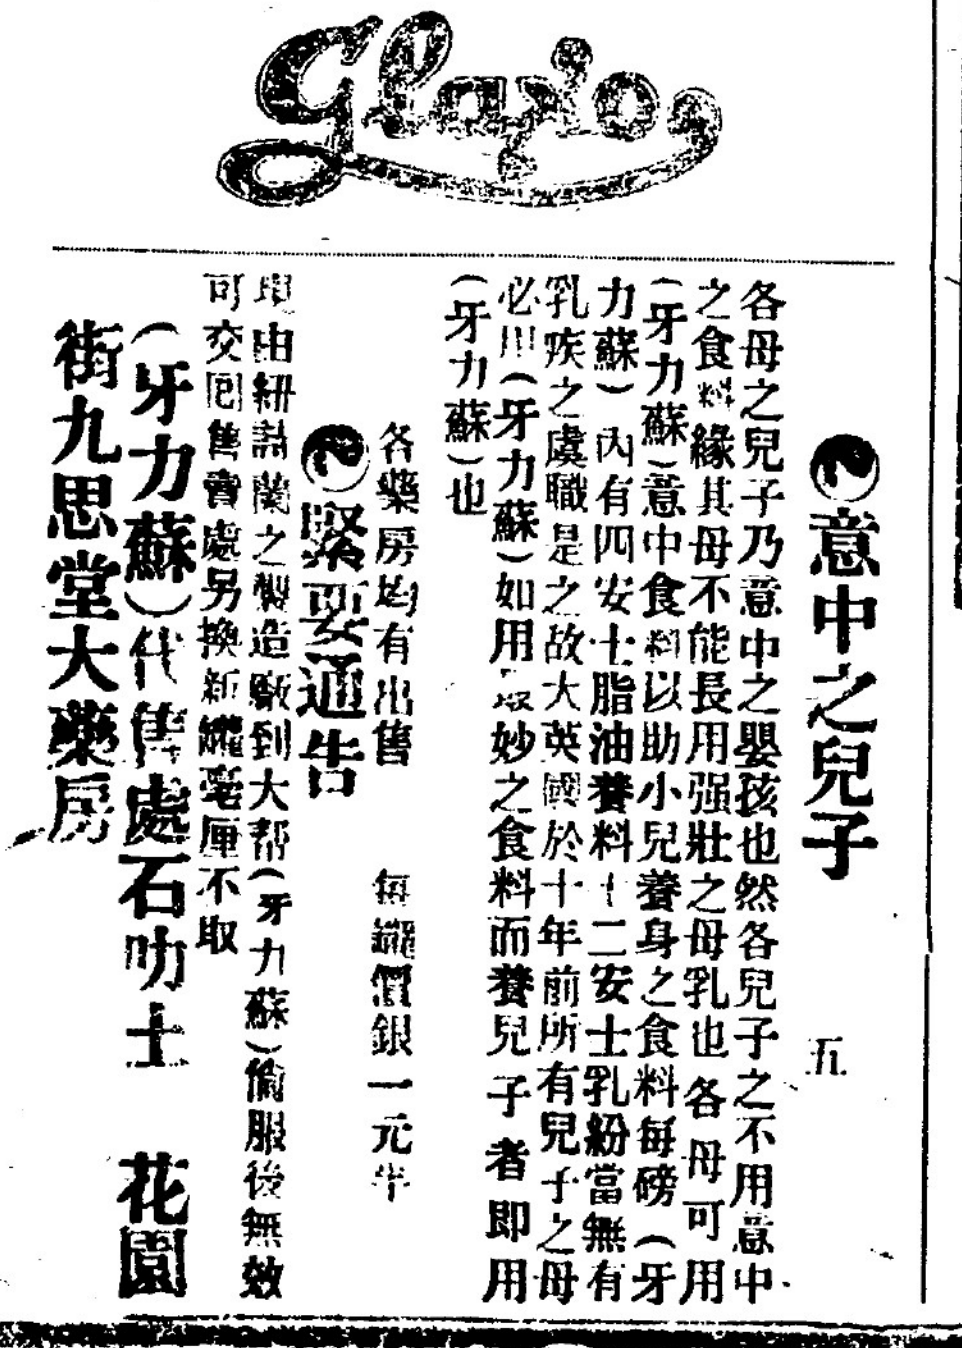 Glaxio
意中之兒子
五
各母之兒子乃意中之嬰孩也然各兒子之不用意中
之食料緣其母不能長用强壯之母乳也各母可用
(牙力蘇)意中食料以助小兒養身之食料每磅(牙
力蘇)內有四安士脂油養料十二安士乳紛當無有
乳疾之虞職是之故大英國於十年前所有兒子之母
必用(牙力蘇)如用妙之食料而養兒子者即用
(牙力蘇)也
各藥房均有出售 每罐價銀一元半
緊要通告
由紐詩蘭之製造廠到大帮(牙力蘇)偷服後無效
可交回售賣處另換新罐毫厘不取
(牙力蘇)代售處石叻士 花園
街九思堂大藥房